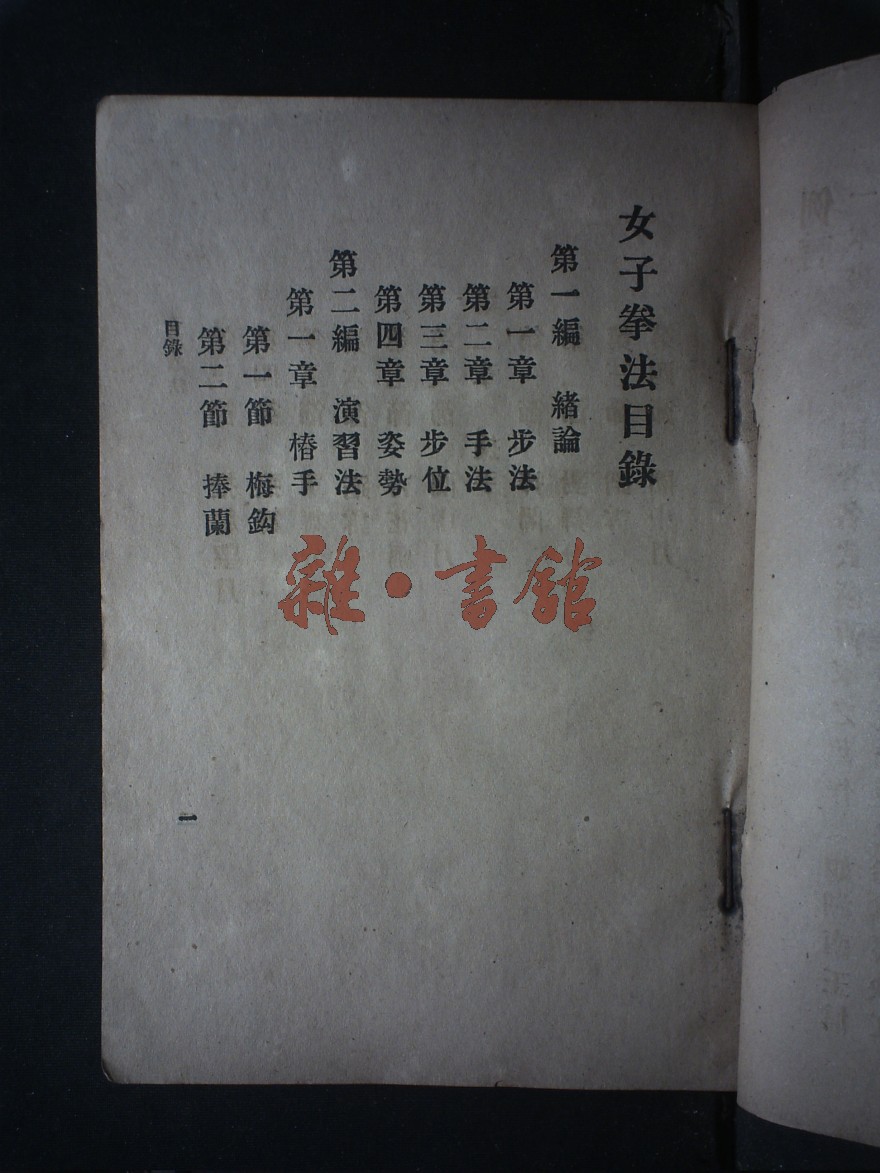 女子拳法目錄
第一編 緒論
第一章 步法
第二章 手法
第三章 步位
第四章 姿勢
第二編 演習法
第一章 樁手
第一節 梅鈎
第二節 捧蘭
目錄
一
雜·書館